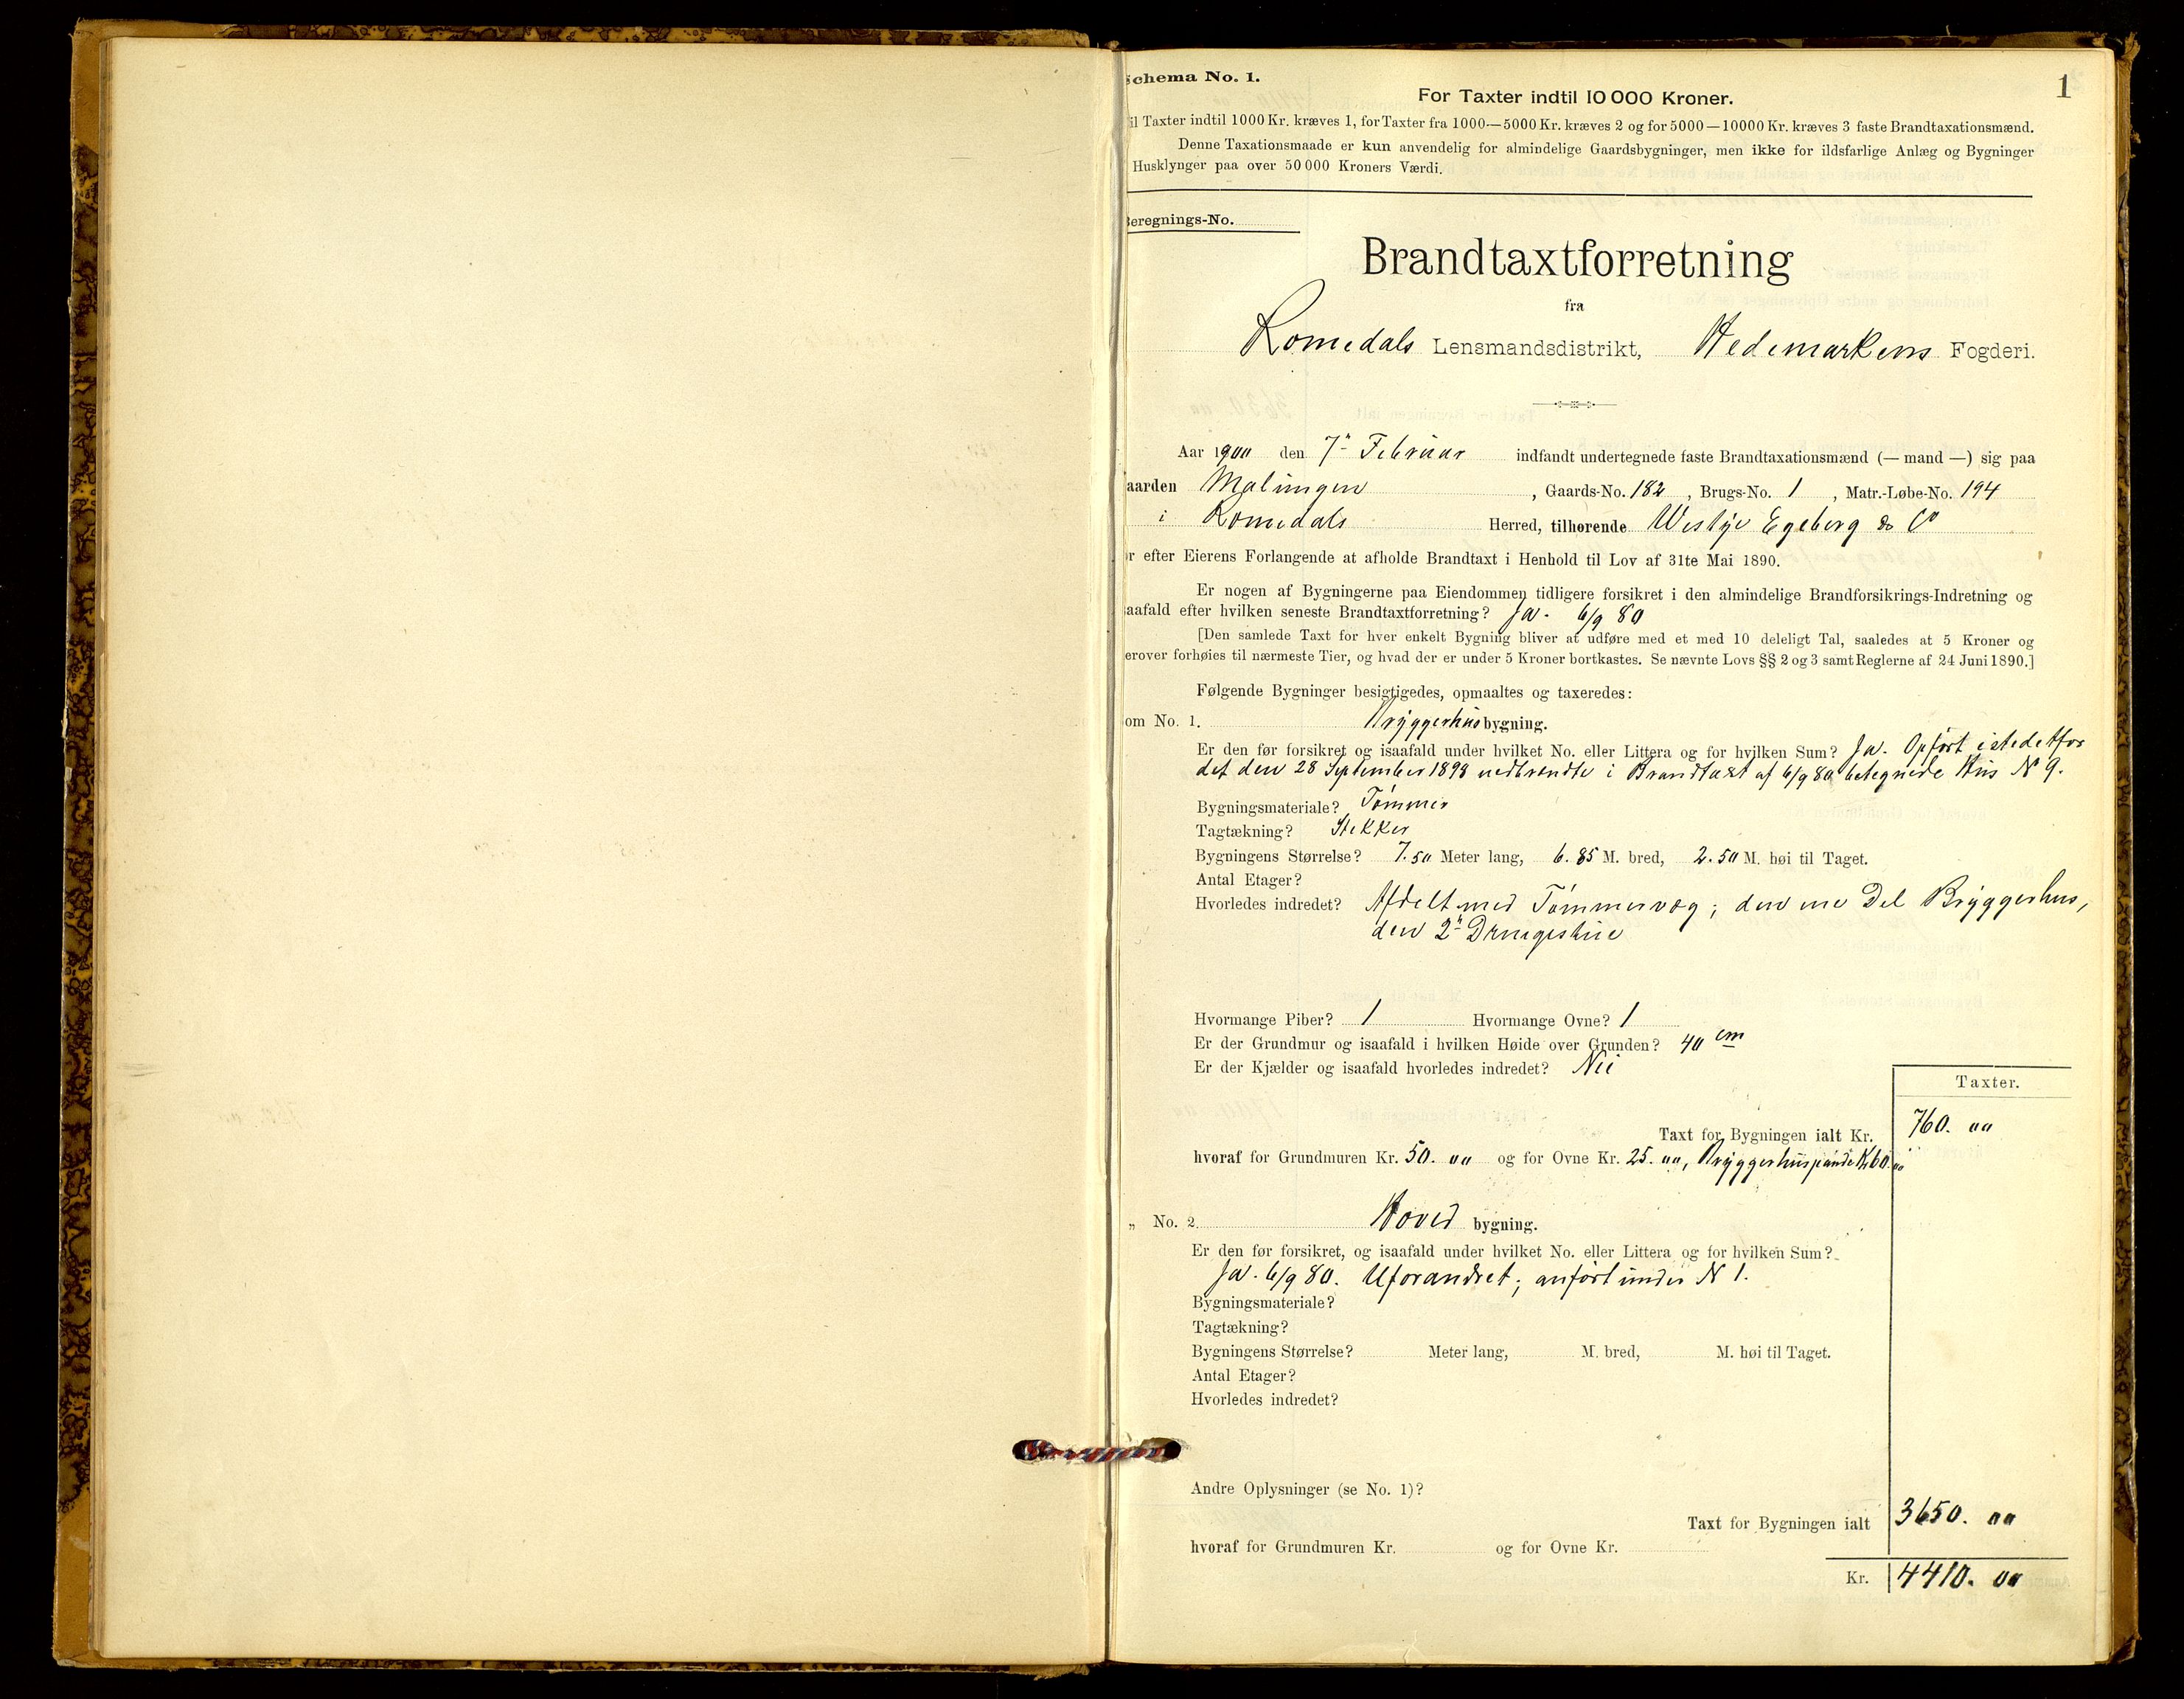 Schema No. 1.
1
For Taxter indtil 10 000 Kroner.
il Taxter indtil 1000 Kr. kræves 1, for Taxter fra 1000—5000 Kr. kræves 2 og for 5000—10000 Kr. kræves 3 faste Brandtaxationsmænd.
Denne Taxationsmaade er kun anvendelig for almindelige Gaardsbygninger, men ikke for ildsfarlige Anlæg og Bygninger
Husklynger paa over 50 000 Kroners Værdi.
Beregnings-No.
Brandtaxtforretning
fra
Romedals Lensmandsdistrikt, Hedemarkens Fogderi.
Aar 1900 den 7n Februar indfandt undertegnede faste Brandtaxationsmænd (— mand —) sig paa
aarden Malungen, Gaards-No. 182, Brugs-No. 1, Matr.-Løbe-No. 194
i Romedals Herred, tilhørende Westye Egeberg & Co
r efter Eierens Forlangende at afholde Brandtaxt i Henhold til Lov af 31te Mai 1890.
Er nogen af Bygningerne paa Eiendommen tidligere forsikret i den almindelige Brandforsikrings-Indretning og
saafald efter hvilken seneste Brandtaxtforretning? Ja. 6/9 80
[Den samlede Taxt for hver enkelt Bygning bliver at udføre med et med 10 deleligt Tal, saaledes at 5 Kroner og
erover forhøies til nærmeste Tier, og hvad der er under 5 Kroner bortkastes. Se nævnte Lovs §§ 2 og 3 samt Reglerne af 24 Juni 1890.]
Følgende Bygninger besigtigedes, opmaaltes og taxeredes:
om No. 1. Bryggerhusbygning.
Er den før forsikret og isaafald under hvilket No. eller Littera og for hvilken Sum? Ja. Opført istedetfor
det den 28 September 1898 nedbrendte i Brandtaxt af 6/9 80 betegnede Hus N 9.
Bygningsmateriale? Tømmer
Tagtækning? Stikker
Bygningens Størrelse? 7.50 Meter lang, 6.85 M. bred, 2.50 M. høi til Taget.
Antal Etager?
Hvorledes indredet? Afdelt med Tømmervæg; den ene Del Bryggerhus,
den 2n Drengestue
Hvormange Piber? 1 Hvormange Ovne? 1
Er der Grundmur og isaafald i hvilken Høide over Grunden? 40 cm
Er der Kjælder og isaafald hvorledes indredet? Nei
Taxter.
Taxt for Bygningen ialt Kr. 760. 00
hvoraf for Grundmuren Kr. 50. 00 og for Ovne Kr. 25. 00, Bryggerhuspande K 60. 00
„ No. 2. Hoved bygning.
Er den før forsikret, og isaafald under hvilket No. eller Littera og for hvilken Sum?
Ja. 6/9 80. Uforandret; anført under N 1.
Bygningsmateriale?
Tagtækning?
Bygningens Størrelse? Meter lang, M. bred, M. høi til Taget.
Antal Etager?
Hvorledes indredet?
Andre Oplysninger (se No. 1)?
Taxt for Bygningen ialt 3650. 00
hvoraf for Grundmuren Kr. og for Ovne Kr.
Kr. 4410. 00